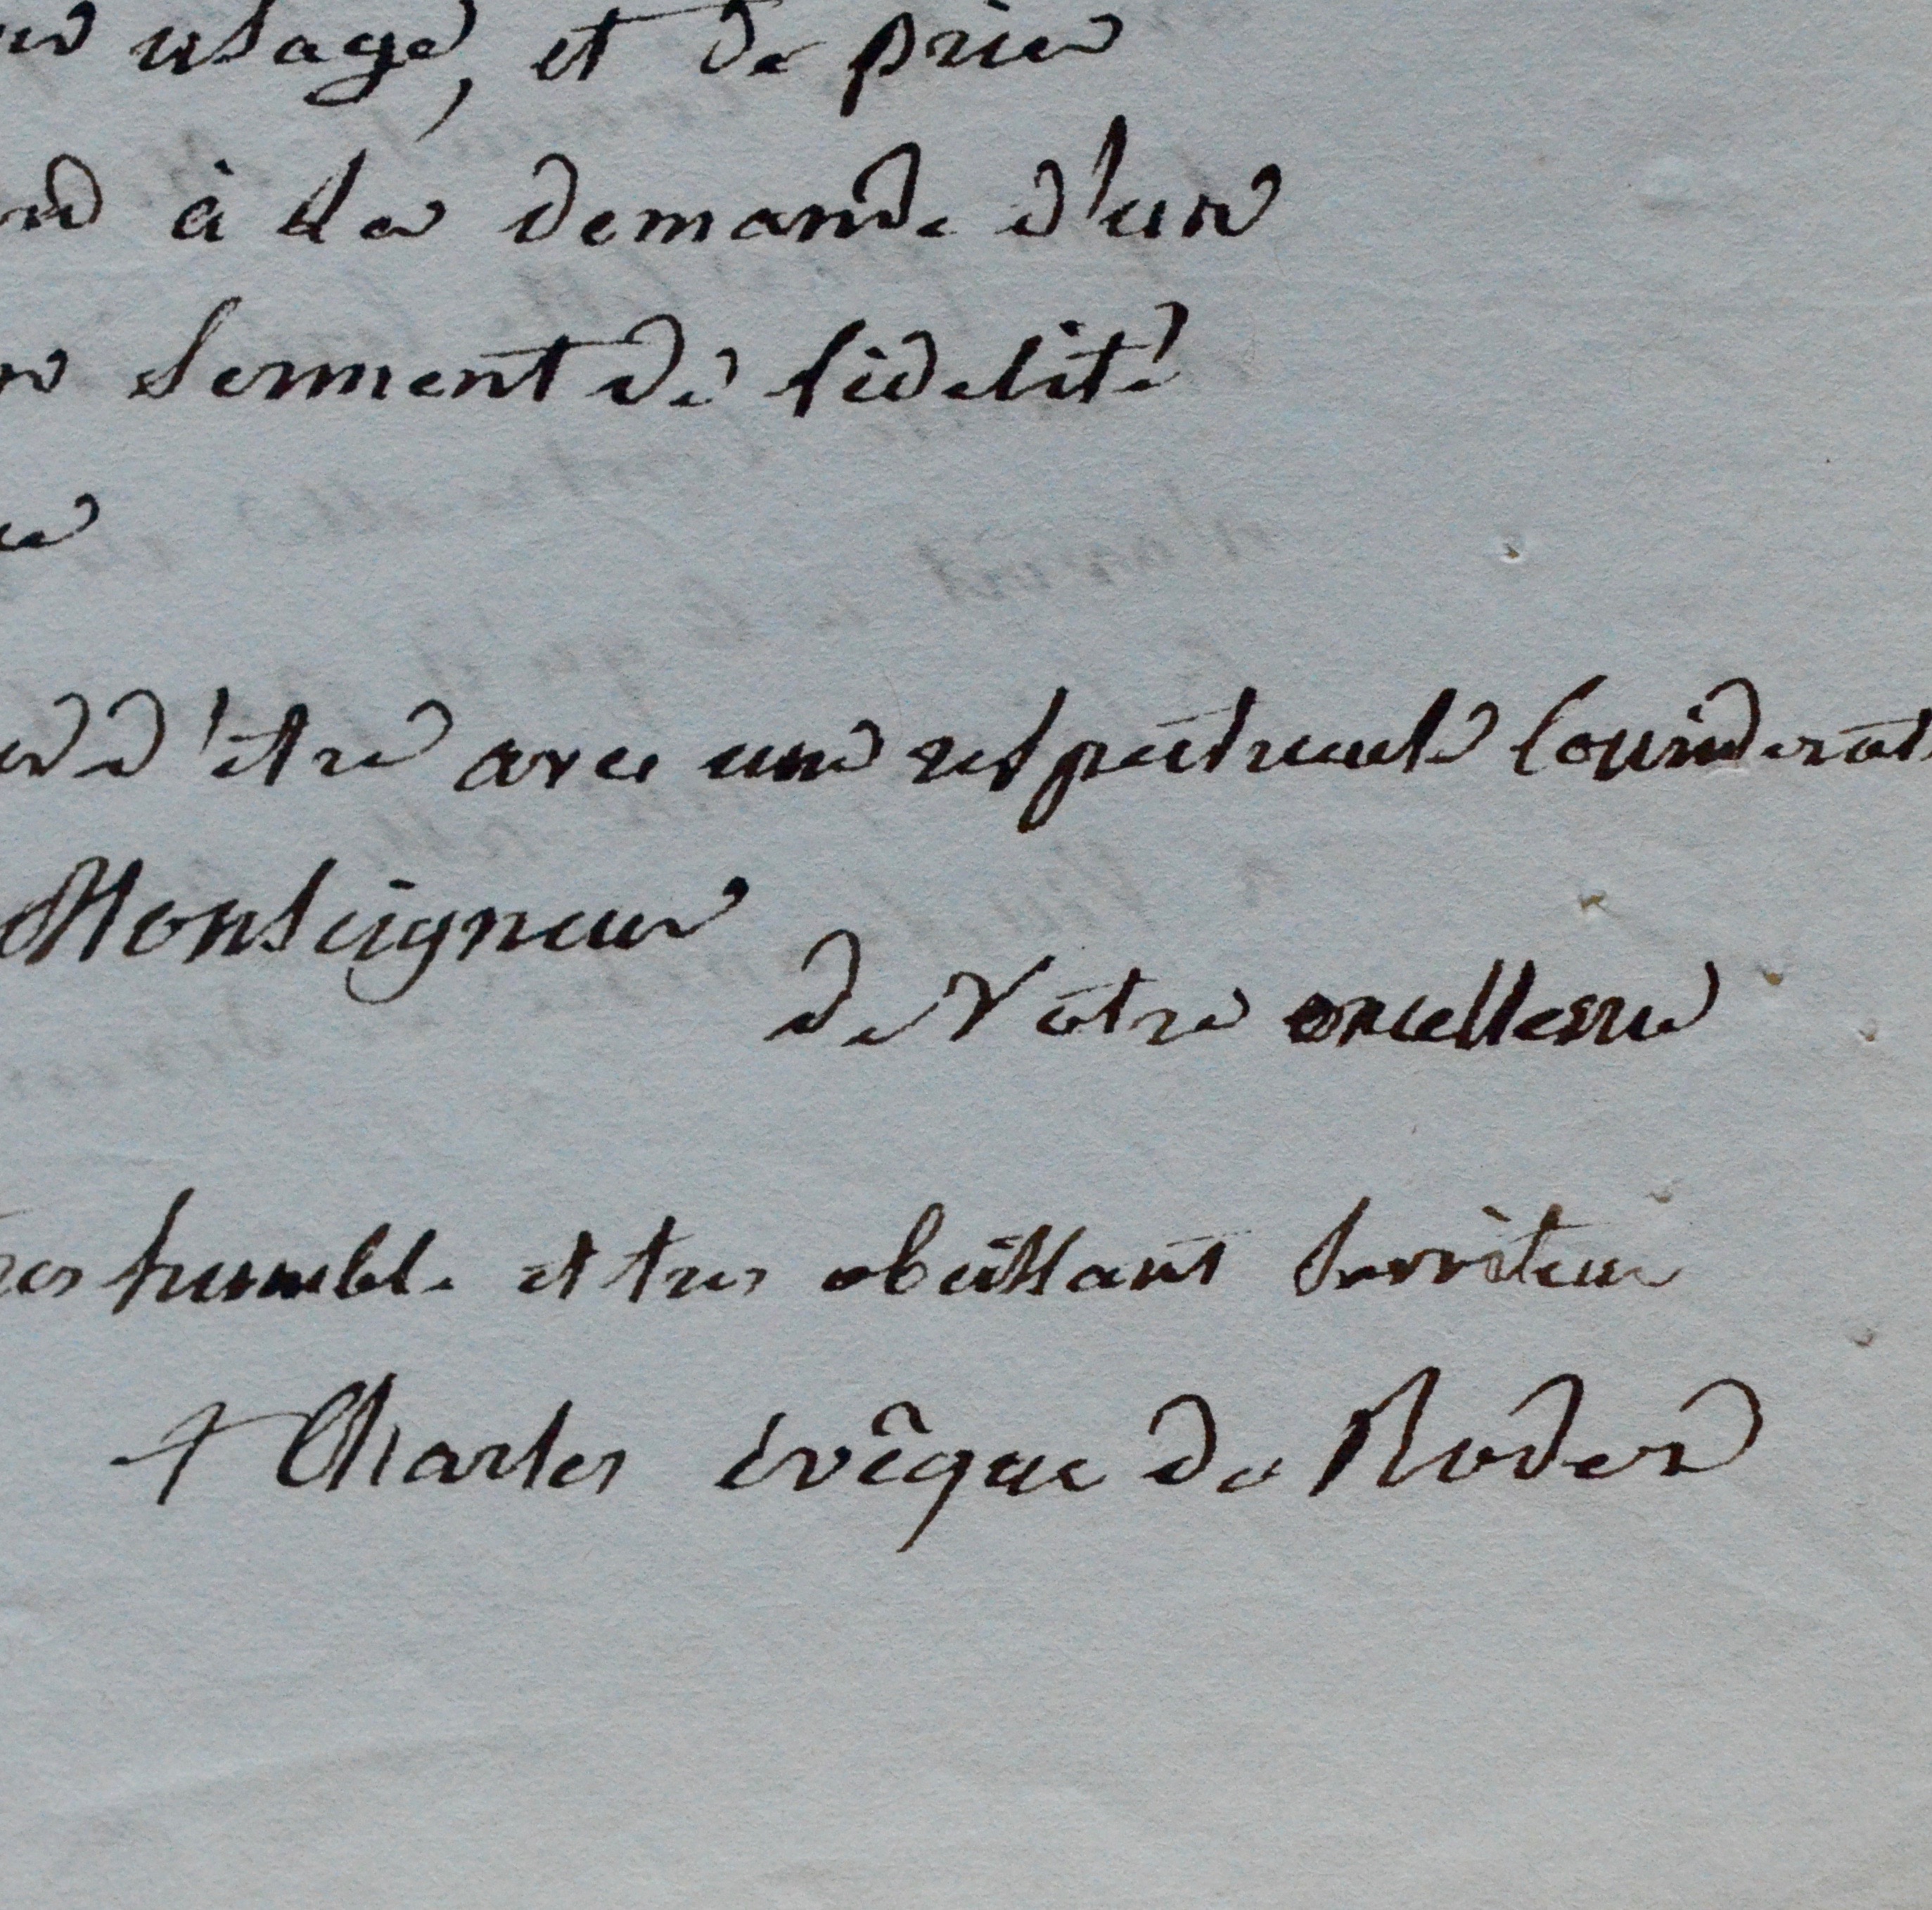 usage, et de prier
à la demande d'un
serment de fidelité
d'etre avec une respectueuse considerat
Monseigneur
de Votre excellence
humble et tres obeissant serviteur
+ Charles évêque de Rodez